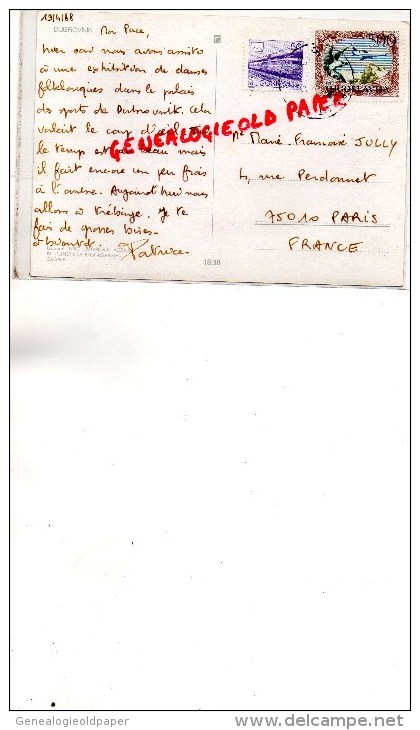 19/4/88
DUBROVNIK
Ma Puce,
hier soir nous avons assisté
à une exhibition de danses
folkloriques dans le palais
des sports de Dubrovnik. Cela
valait le coup d'œil
le temps est beau mais
il fait encore un peu frais
à l'ombre. Aujourd'hui nous
allons à Trébinge. Je te
fais de grosses bises.
à bientôt. Patrice
1838
GENEALOGIEOLD PAPER
Marie-Françoise JOLLY
4, rue Perdonnet
75010 PARIS
FRANCE
Genealogieoldpaper
www.delcampe.net